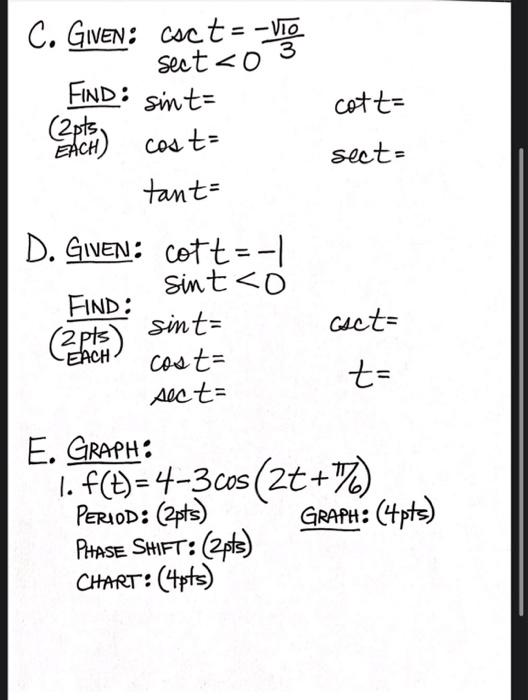 C. GIVEN: csc t = -√10/3
sec t < 0
FIND: sin t=
cot t=
(2pts, EACH)
cos t=
sec t=
tan t=
D. GIVEN: cot t = -1
sin t < 0
FIND:
(2pts EACH)
sin t=
csc t=
cos t=
t=
sec t=
E. GRAPH:
1. f(t) = 4-3cos(2t+π/6)
PERIOD: (2pts)
GRAPH: (4pts)
PHASE SHIFT: (2pts)
CHART: (4pts)